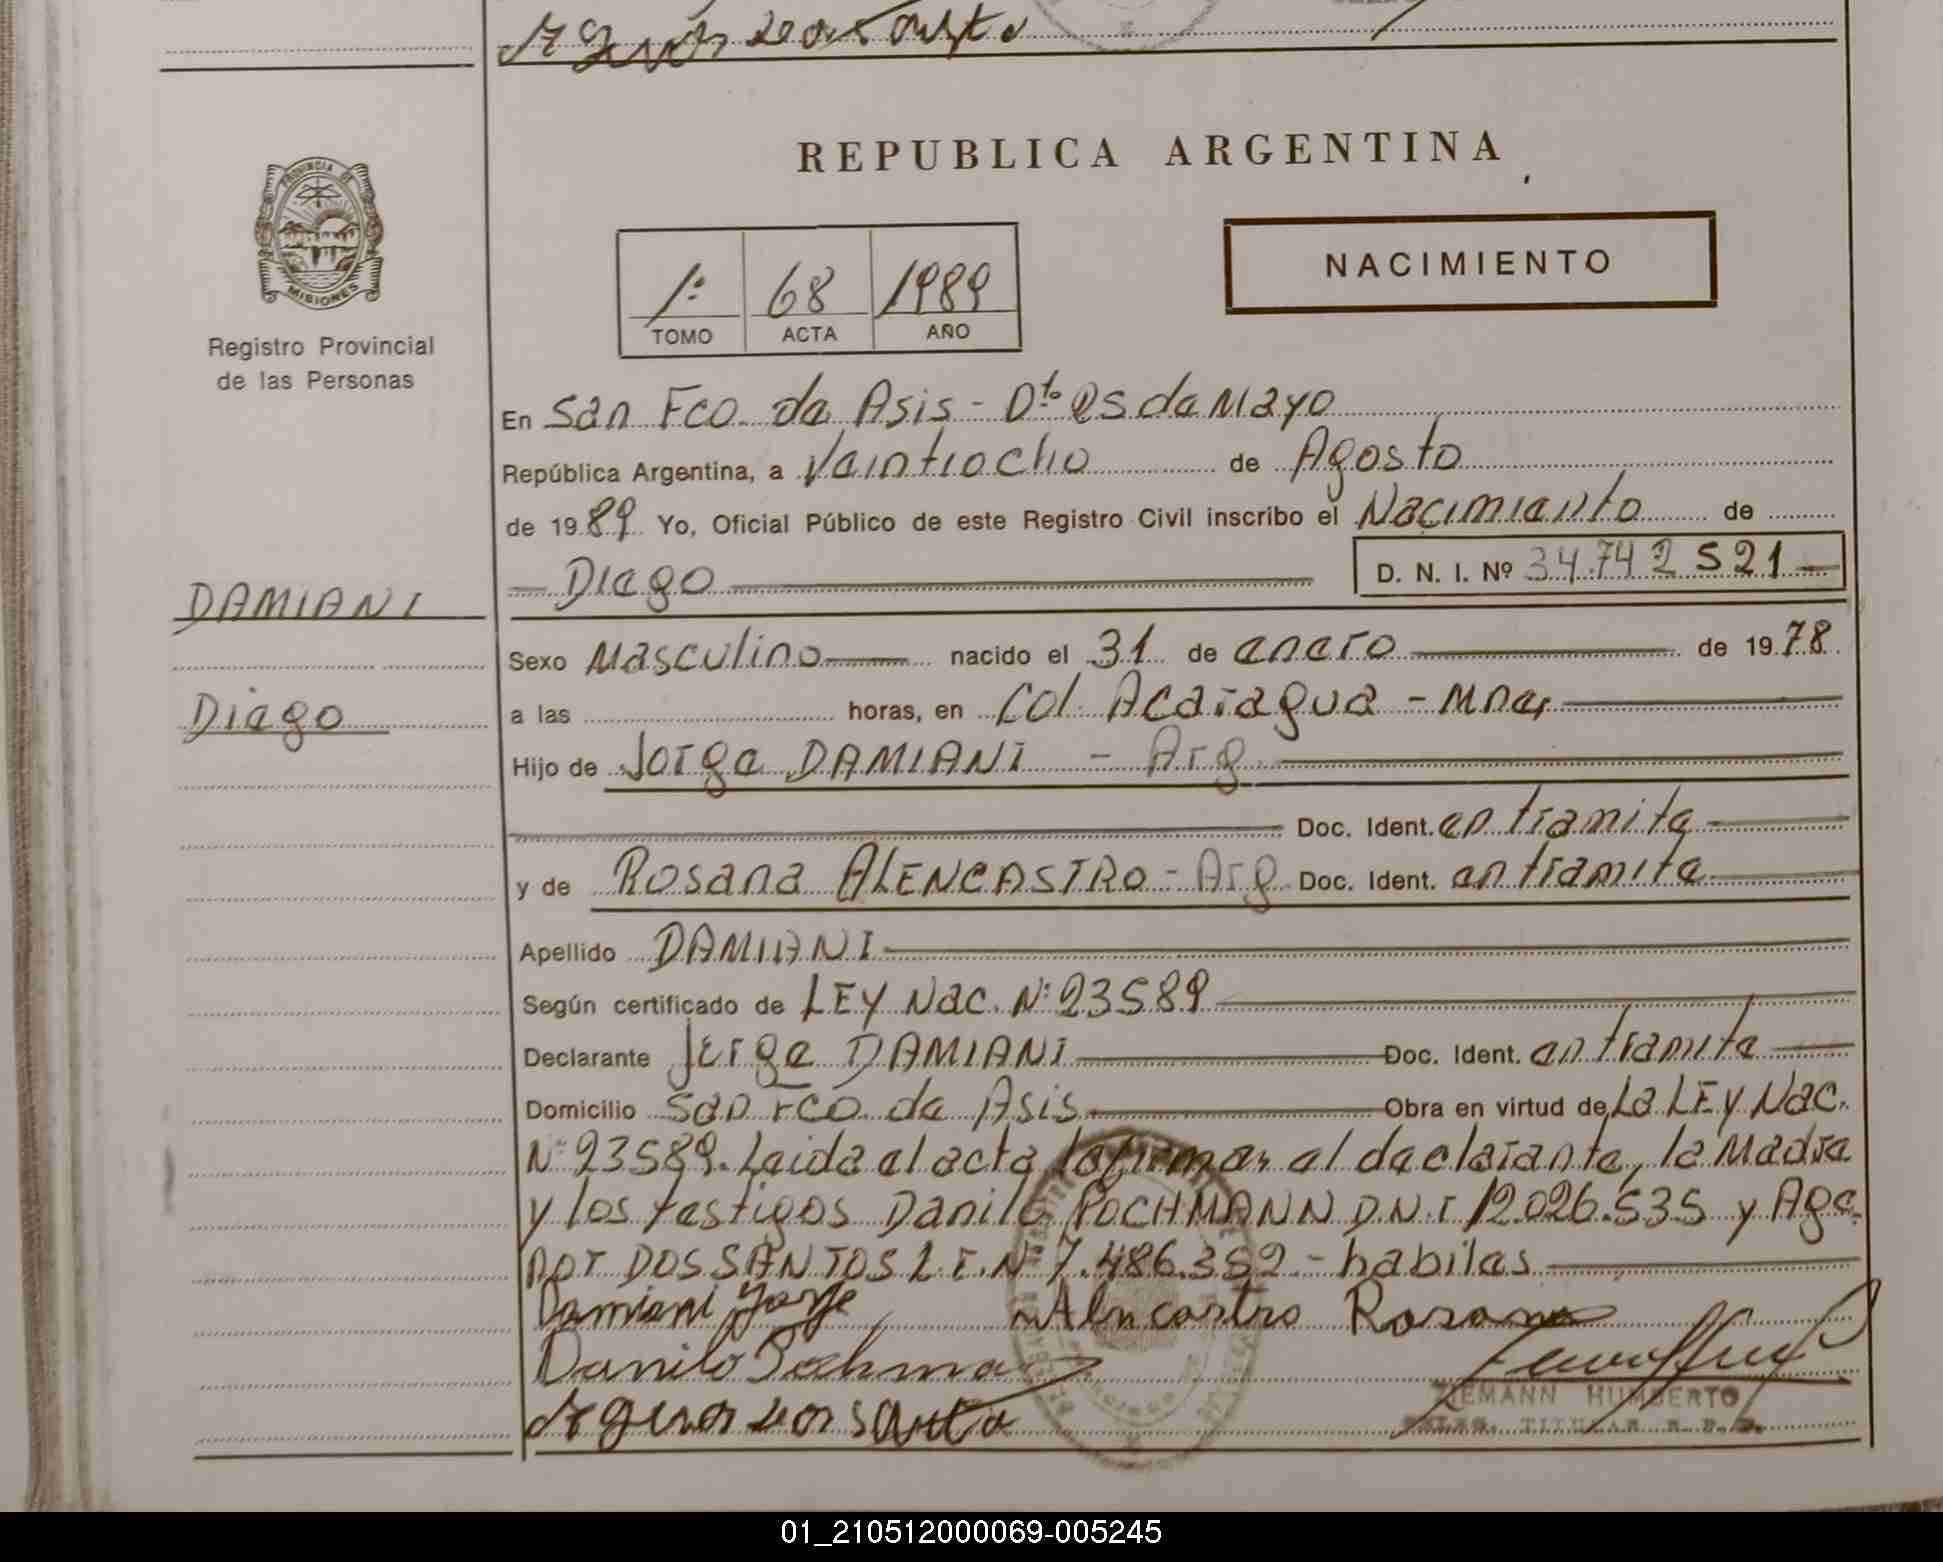 PROVINCIA DE
MISIONES
Registro Provincial
de las Personas
REPUBLICA ARGENTINA
NACIMIENTO
1º 68 1989
TOMO ACTA AÑO
En San Fco. de Asis - Dto 25 de Mayo
República Argentina, a Veintiocho de Agosto
de 1989 Yo, Oficial Público de este Registro Civil inscribo el Nacimiento de
Diego D. N. I. Nº 34.742521
DAMIANI
Diego
Sexo Masculino nacido el 31 de enero de 1978
a las horas, en Col. Acaragua - Mnes
Hijo de Jorge DAMIANI - Arg
Doc. Ident. en tramite
y de Rosana ALENCASTRO - Arg Doc. Ident. en tramite
Apellido DAMIANI
Según certificado de LEY Nac. Nº 23589
Declarante Jorge DAMIANI Doc. Ident. en tramite
Domicilio San Fco. de Asis Obra en virtud de La LEY Nac.
Nº 23589. Leida el acta la firman el declarante, la Madre
y los testigos Danilo POCHMANN D.N.I 12.026.535 y Age-
nor DOS SANTOS L.E.Nº 7.486.352 - habiles
Damiani Jorge Alencastro Rosana
Danilo Pochman
Agenor dos Santos
ZIEMANN HUMBERTO
DELEG. TITULAR R. P. P.
01_210512000069-005245